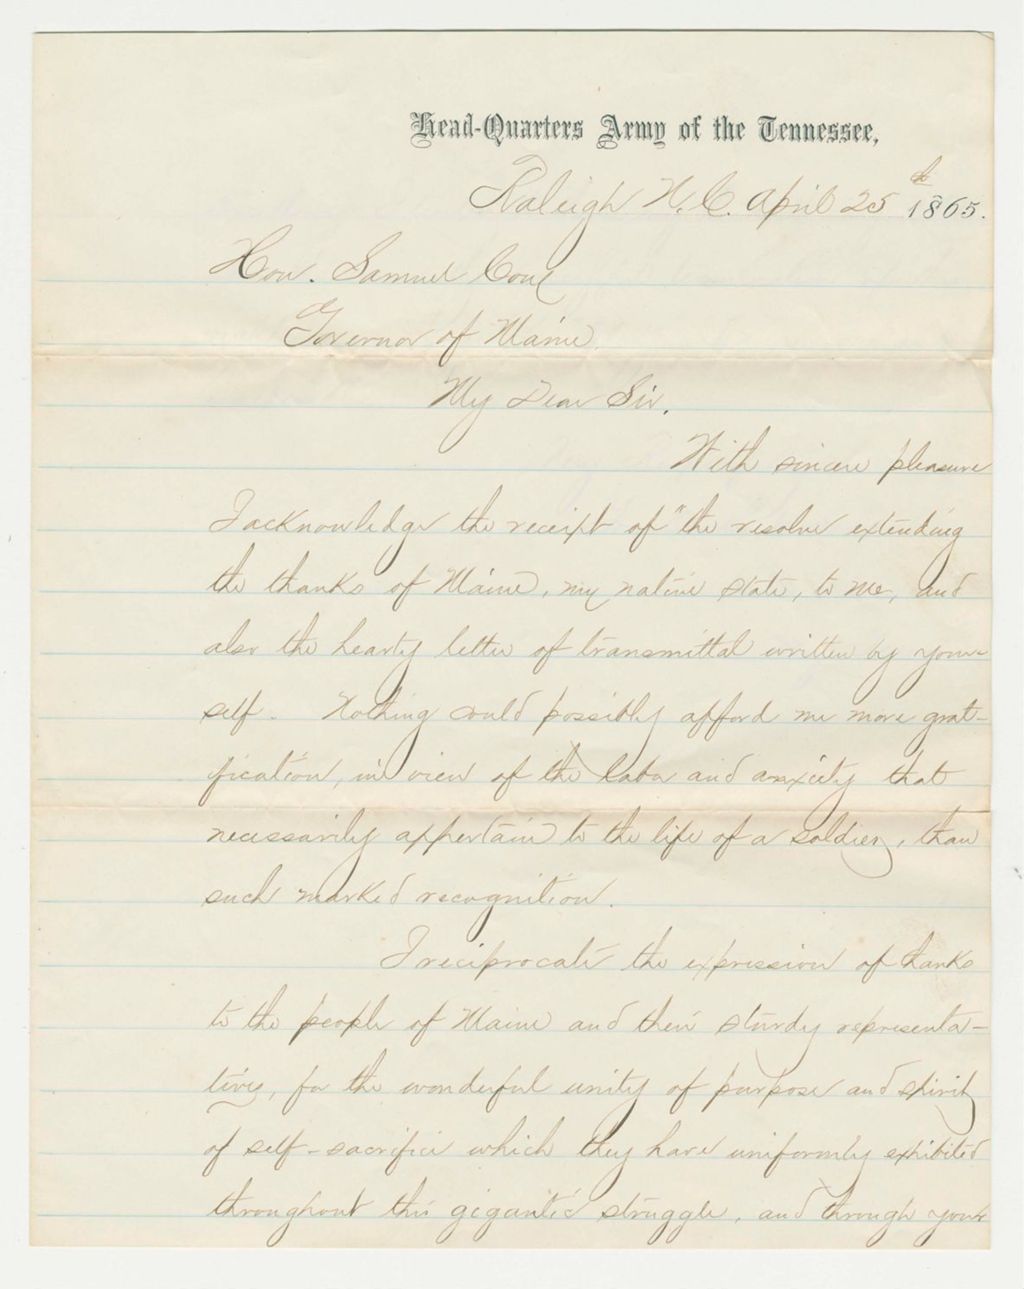 Head-Quarters Army of the Tennessee,
Raleigh N.C. April 25th 1865.
Hon. Samuel Cony
Governor of Maine
My Dear Sir.
With sincere pleasure
I acknowledge the receipt of "the resolve extending
the thanks of Maine, my native state, to me, and
also the hearty letter of transmittal written by your-
self. Nothing could possibly afford me more grat-
ification, in view of the labor and anxiety that
necessarily appertain to the life of a soldier, than
such marked recognition.
I reciprocate the expression of thanks
to the people of Maine and their sturdy representa-
tives, for the wonderful unity of purpose and spirit
of self-sacrifice which they have uniformly exhibited
throughout this gigantic struggle, and through your